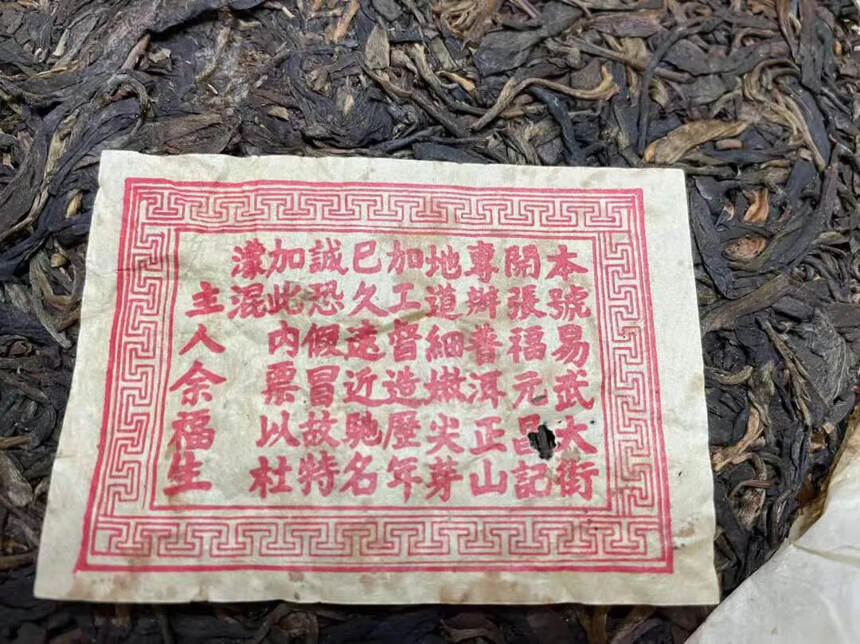 本號易武大街
開張福元昌記
專辦普洱正山
地道細嫩尖芽
加工督造歷年
巳久遠近馳名
誠恐假冒故特
加此內票以杜
濛混
主人余福生